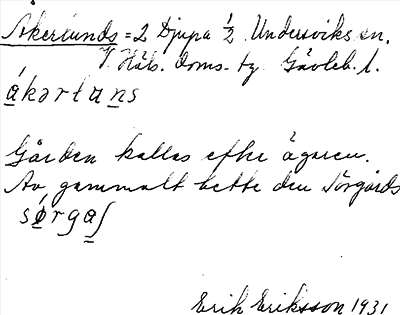 Åkerlunds = 2 Djupa 1/2 Undersviks sn.
V. Häls. doms. tg Gävleb. l.
ákərlans
Gården kallas efter ägaren.
Av gammalt hette den Sörgårds
sǿrgaʃ
Erik Eriksson 1931